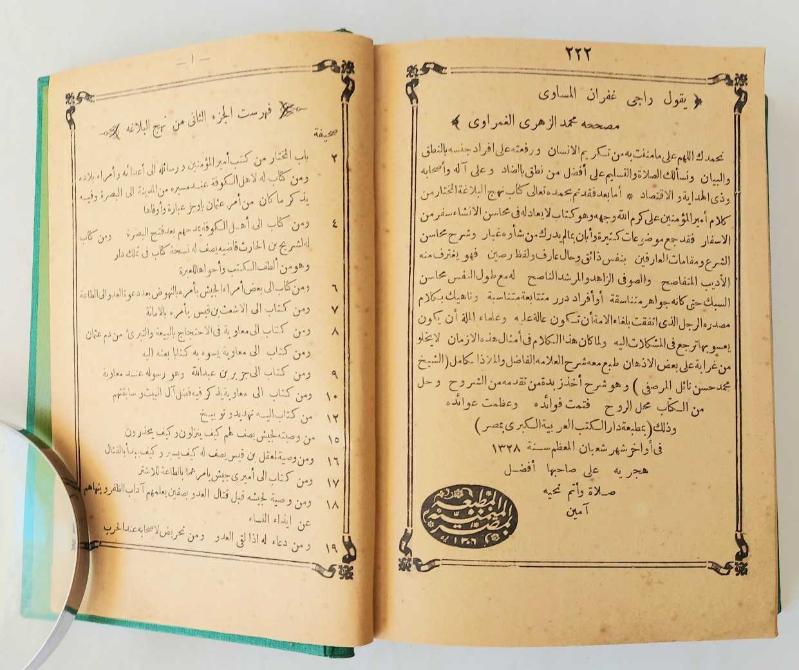 ٢٢٢
﴿ يقول راجى غفران المساوى
مصححه محمد الزهرى الغمراوى ﴾
نحمدك اللهم على ما منحت به من تكريم الانسان ورفعته على افراد جنسه بالنطق
والبيان ونسألك الصلاة والتسليم على أفضل من نطق بالضاد وعلى آله وأصحابه
وذى الهداية والاقتصاد * أما بعد فقد تم بحمده تعالى كتاب نهج البلاغة المختار من
كلام أمير المؤمنين على كرم الله وجهه وهو كتاب لا يعادله فى محاسن الانشاء سفر من
الاسفار فقد جمع موضوعات كثيرة وأبان بمالم يدرك من شأوه غبار وشرح محاسن
الشرع ومقامات العارفين بنفس ذائق وحال عارف ولفظ رصين فهو يغترف منه
الأديب المتفاصح والصوفى الزاهد والمرشد الناصح له مع طول النفس محاسن
السبك حتى كانه جواهر متناسقة أو أفراد درر متتابعة متناسبة وناهيك بكلام
مصدره الرجل الذى اتفقت بلغاء الامة أن تكون عالة عليه وعلماء الملة أن يكون
يعسوبها ترجع فى المشكلات اليه ولما كان هذا الكلام فى أمثال هذه الازمان لا يخلو
من غرابة على بعض الاذهان طبع معه شرح العلامه الفاضل والملاذ الكامل (الشيخ
محمد حسن نائل المرصفى) وهو شرح أخذ زبدة من تقدمه من الشروح وحل
من الكتاب محل الروح فتمت فوائده وعظمت عوائده
وذلك (بمطبعة دار الكتب العربية الكبرى بمصر)
فى أواخر شهر شعبان المعظم سنة ١٣٢٨
هجريه على صاحبها أفضل
صلاة وأتم تحيه
آمين
المطبعة
الميمنية
بمصر
— ١ —
﴿ فهرست الجزء الثانى من نهج البلاغه ﴾
صحيفة
٢ باب المختار من كتب أمير المؤمنين ورسائله الى أعدائه وأمراء بلاده
ومن كتاب له لاهل الكوفة عند مسيره من المدينة الى البصرة وفيه
يذكر ما كان من أمر عثمان باوجز عبارة وأوفاها
٤ ومن كتاب الى أهل الكوفة يمدحهم بعد فتح البصرة ومن كتاب
له لشريح بن الحارث قاضيه يصف له نسخة كتاب فى تملك دار
وهو من ألطف الكتب وأجواها للعبرة
٦ ومن كتاب الى بعض أمراء الجيش يأمره بالنهوض بعد دعوة العدو الى الطاعة
٧ ومن كتاب الى الاشعث بن قيس يأمره بالامانة
٨ ومن كتاب الى معاوية فى الاحتجاج بالبيعة والتبرئ من دم عثمان
ومن كتاب الى معاوية يسوءه به كتابا بعثه اليه
٩ ومن كتاب الى جرير بن عبدالله وهو رسوله عند معاوية
١٠ ومن كتاب الى معاوية يذكر فيه فضل آل البيت وسابقتهم
١٢ من كتاب اليه تهديد وتوبيخ
١٥ من وصيته لجيش يصف لهم كيف ينزلون وكيف يحذرون
١٦ ومن وصية لمعقل بن قيس يصف له كيف يسير وكيف يبدأ بالقتال
١٧ ومن كتاب الى أميرى جيش يأمرهما بالطاعة للاشتر
١٨ ومن وصية لجيشه قبل قتال العدو بصفين يعلمهم آداب الظفر وينهاهم
عن إيذاء النساء
١٩ ومن دعاء له اذا لقى العدو ومن تحريض لاصحابه عند الحرب